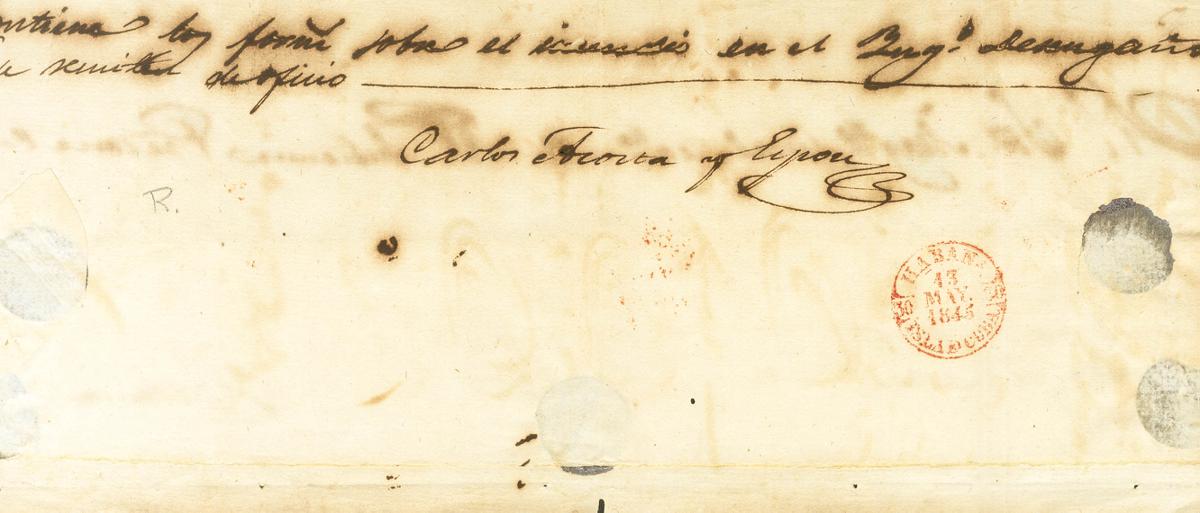 ntiene los form sobre el incendio en el Yng.º desengaño
se remiten de oficio
Carlos Acosta y
R.
HABANA
13
MAY.
1845
ISLA D CUBA